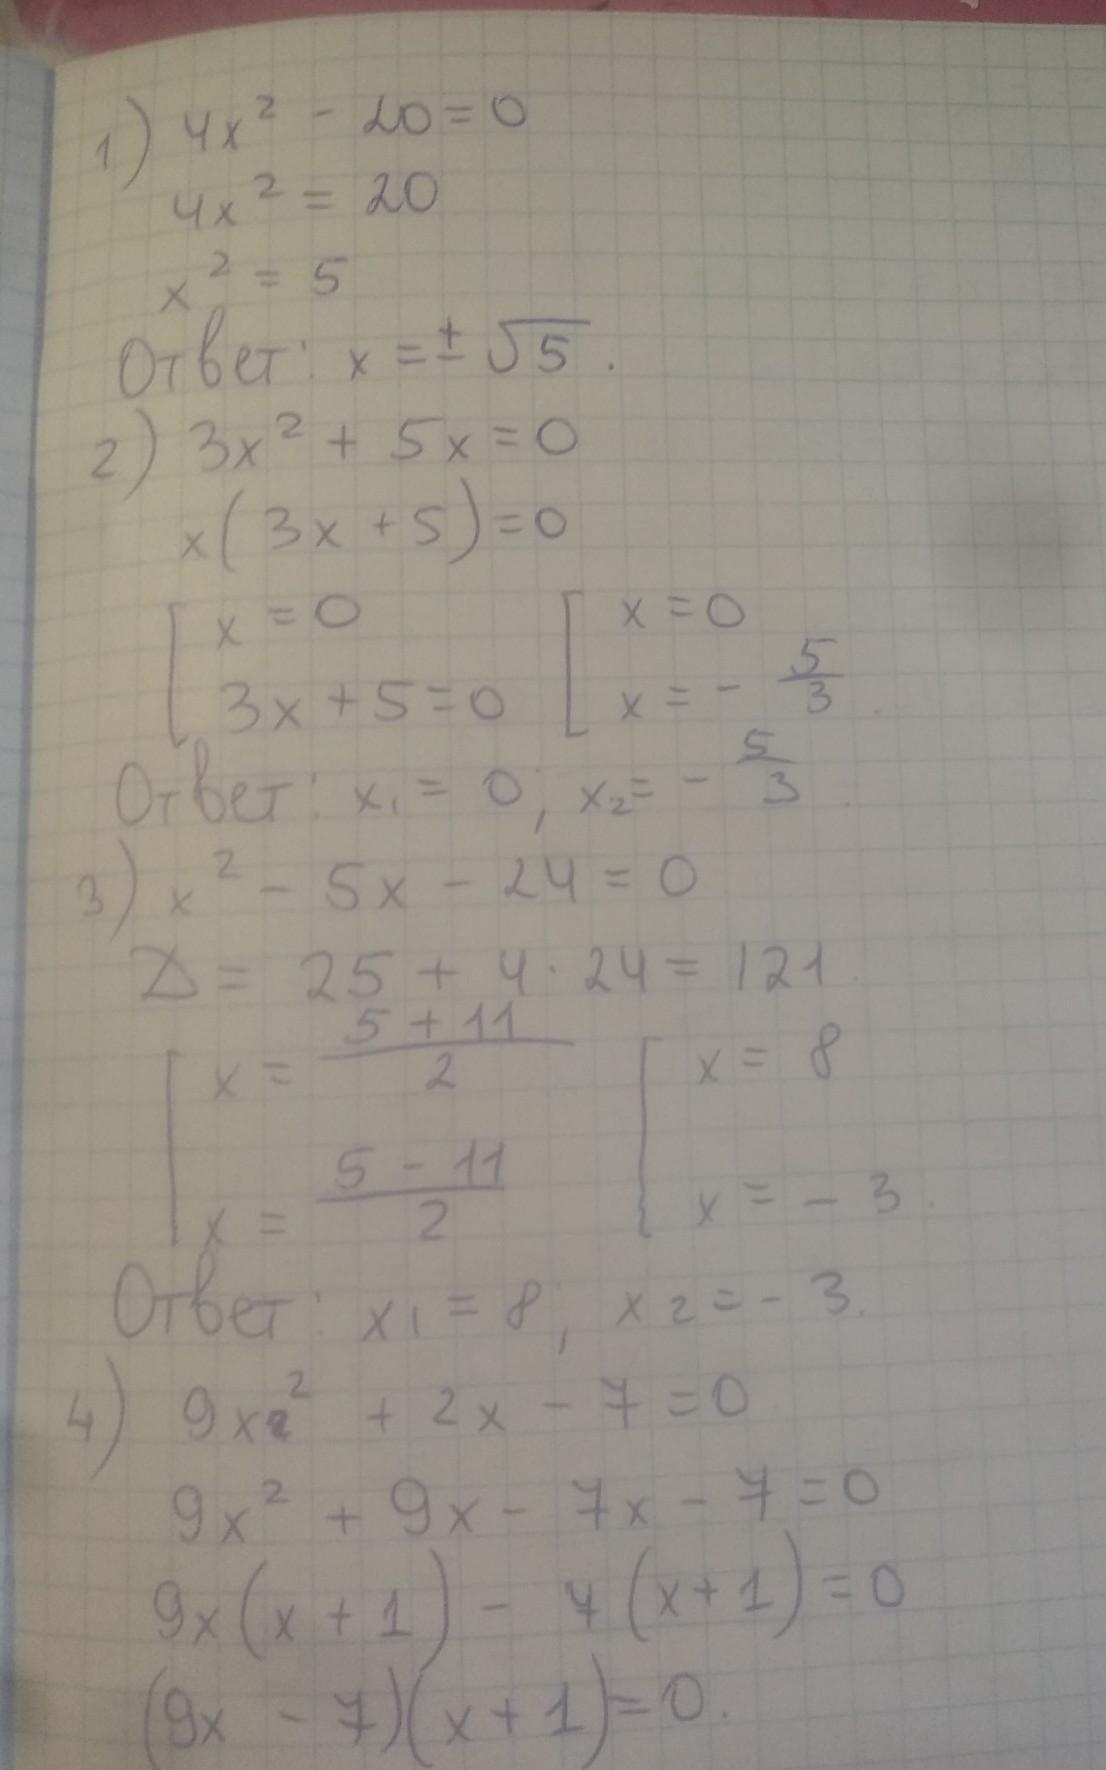 1) 4x² - 20 = 0
4x² = 20
x² = 5
Ответ: x = ± √5.
2) 3x² + 5x = 0
x(3x + 5) = 0
[ x = 0 [ x = 0
3x + 5 = 0 x = - 5/3.
Ответ: x₁ = 0; x₂ = - 5/3.
3) x² - 5x - 24 = 0
D = 25 + 4 · 24 = 121
[ x = (5 + 11)/2 [ x = 8
x = (5 - 11)/2 x = - 3.
Ответ: x₁ = 8; x₂ = - 3.
4) 9x² + 2x - 7 = 0
9x² + 9x - 7x - 7 = 0
9x(x + 1) - 7(x + 1) = 0
(9x - 7)(x + 1) = 0.